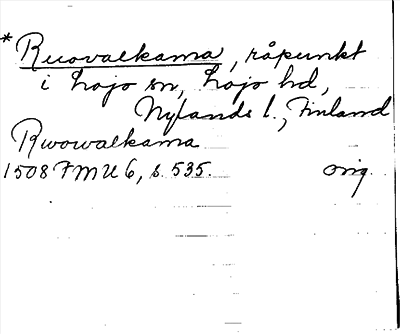 * Ruovalkama, råpunkt
i Lojo sn, Lojo hd,
Nylands l., Finland
Rwowalkama
1508 FMU 6, s. 535. orig.